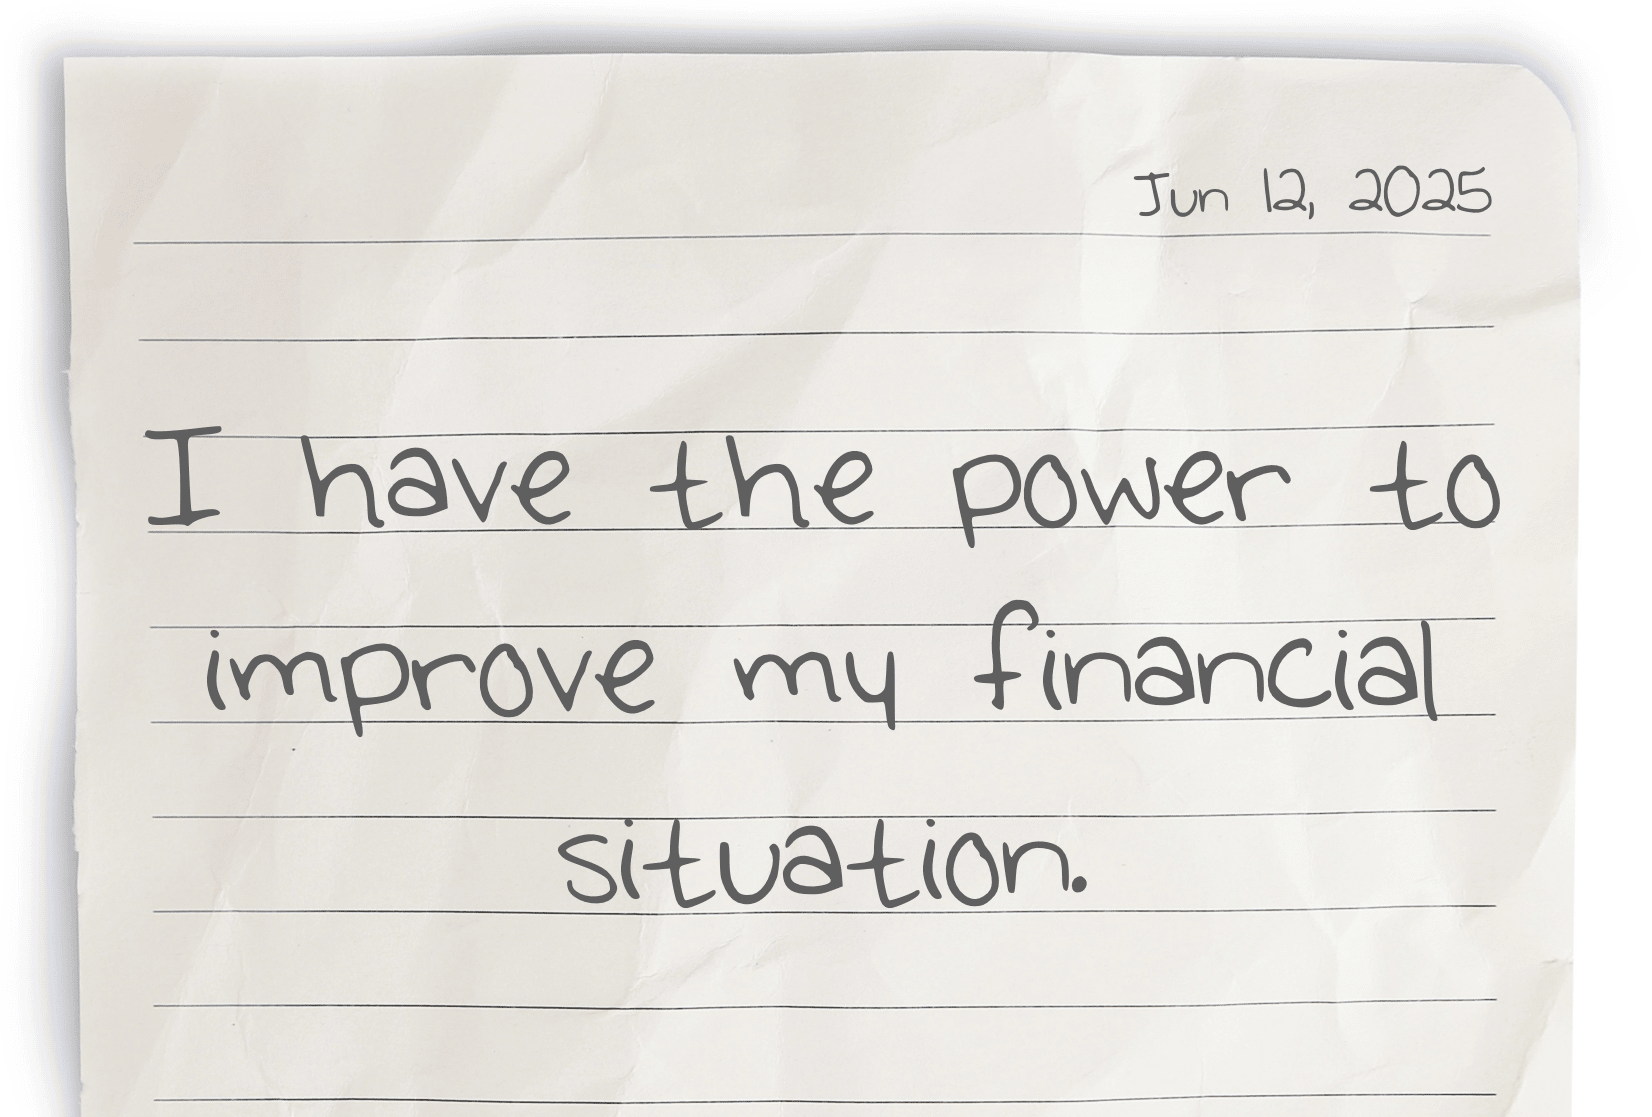 Jun 12, 2025
I have the power to
improve my financial
situation.